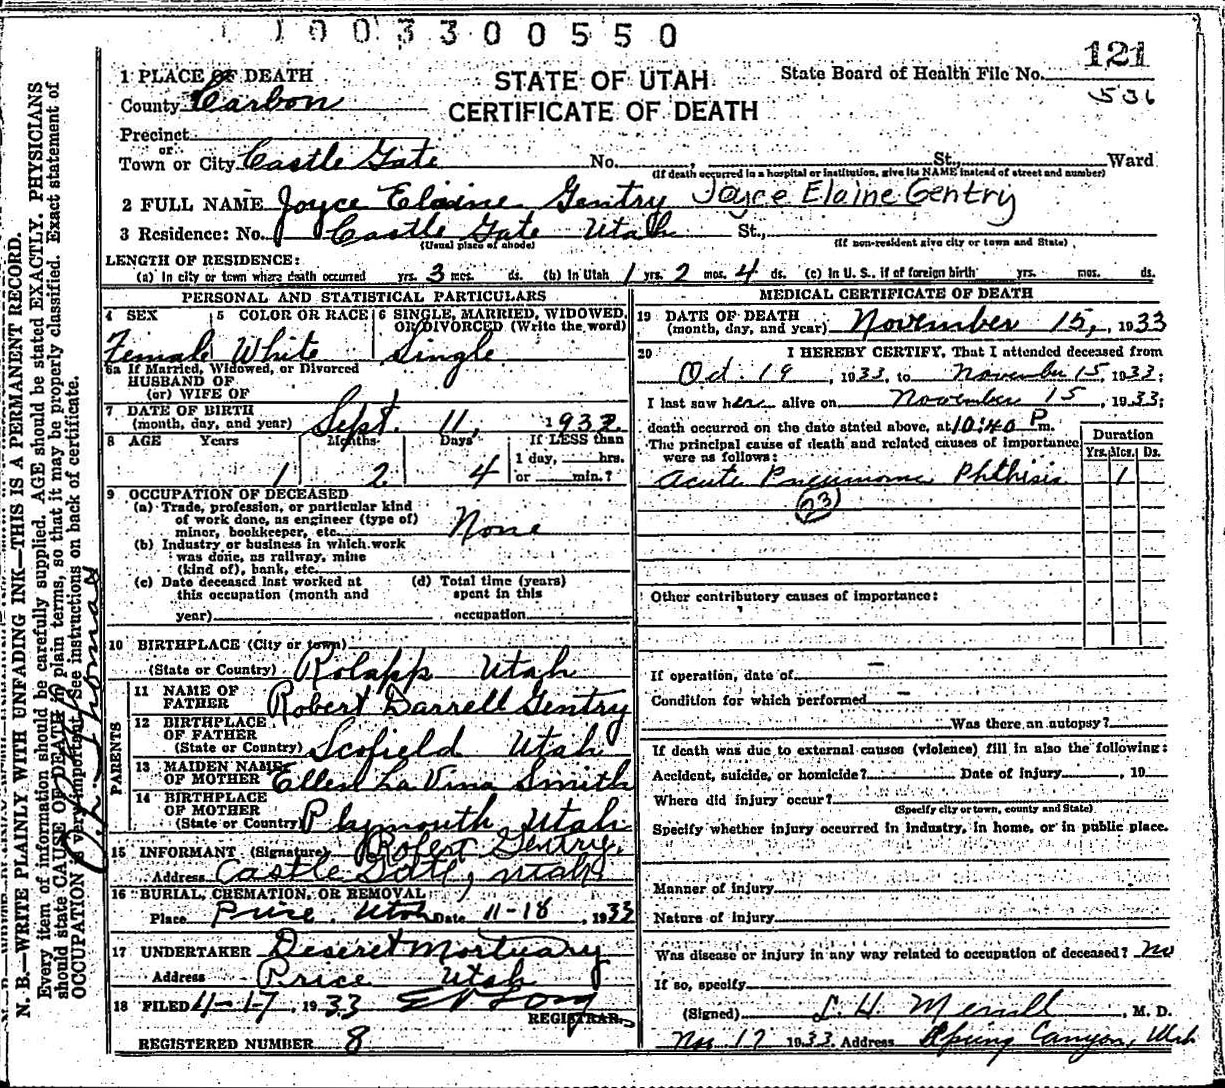 1003300550
121
STATE OF UTAH
CERTIFICATE OF DEATH
State Board of Health File No.
536
1 PLACE OF DEATH
County Carbon
Precinct
or
Town or City Castle Gate No. , St., Ward
(If death occurred in a hospital or institution, give its NAME instead of street and number)
2 FULL NAME Joyce Elaine Gentry Joyce Elaine Gentry
3 Residence: No. Castle Gate Utah St.,
(Usual place of abode) (If non-resident give city or town and State)
LENGTH OF RESIDENCE:
(a) In city or town where death occurred yrs. 3 mos. ds. (b) In Utah 1 yrs. 2 mos. 4 ds. (c) In U. S., if of foreign birth yrs. mos. ds.
PERSONAL AND STATISTICAL PARTICULARS
4 SEX 5 COLOR OR RACE 6 SINGLE, MARRIED, WIDOWED,
OR DIVORCED (Write the word)
Female White Single
6a If Married, Widowed, or Divorced
HUSBAND OF
(or) WIFE OF
7 DATE OF BIRTH
(month, day, and year) Sept. 11, 1932
8 AGE Years Months Days If LESS than
1 day, hrs.
1 2 4 or min.?
9 OCCUPATION OF DECEASED
(a) Trade, profession, or particular kind
of work done, as engineer (type of)
minor, bookkeeper, etc. None
(b) Industry or business in which work
was done, as railway, mine
(kind of), bank, etc.
(c) Date deceased last worked at (d) Total time (years)
this occupation (month and spent in this
year) occupation
10 BIRTHPLACE (City or town)
(State or Country) Rolapp Utah
PARENTS
11 NAME OF
FATHER Robert Darrell Gentry
12 BIRTHPLACE
OF FATHER
(State or Country) Scofield Utah
13 MAIDEN NAME
OF MOTHER Ellen La Vina Smith
14 BIRTHPLACE
OF MOTHER
(State or Country) Playmouth Utah
15 INFORMANT (Signature) Robert Gentry.
Address Castle Gate, Utah
16 BURIAL, CREMATION, OR REMOVAL
Place Price, Utah Date 11-18, 1933
17 UNDERTAKER Deseret Mortuary
Address Price Utah
18 FILED 11-17, 1933
REGISTRAR.
REGISTERED NUMBER 8
MEDICAL CERTIFICATE OF DEATH
19 DATE OF DEATH
(month, day, and year) November 15, 1933
20 I HEREBY CERTIFY, That I attended deceased from
Oct. 19, 1933, to November 15, 1933;
I last saw her alive on November 15, 1933;
death occurred on the date stated above, at 10:40 P m.
The principal cause of death and related causes of importance
were as follows:
Duration
Yrs. Mos. Ds.
Acute Pneumonic Phthisis 1
(23)
Other contributory causes of importance:
If operation, date of —
Condition for which performed —
Was there an autopsy?
If death was due to external causes (violence) fill in also the following:
Accident, suicide, or homicide? Date of Injury , 19
Where did injury occur?
(Specify city or town, county and State)
Specify whether injury occurred in industry, in home, or in public place.
Manner of injury
Nature of injury
Was disease or injury in any way related to occupation of deceased? No
If so, specify
(Signed) L. H. Merrill, M. D.
Nov 17 1933 Address Spring Canyon, Utah
N. B.—WRITE PLAINLY WITH UNFADING INK—THIS IS A PERMANENT RECORD.
Every item of information should be carefully supplied. AGE should be stated EXACTLY. PHYSICIANS
should state CAUSE OF DEATH in plain terms, so that it may be properly classified. Exact statement of
OCCUPATION is very important. See instructions on back of certificate.
Thomas